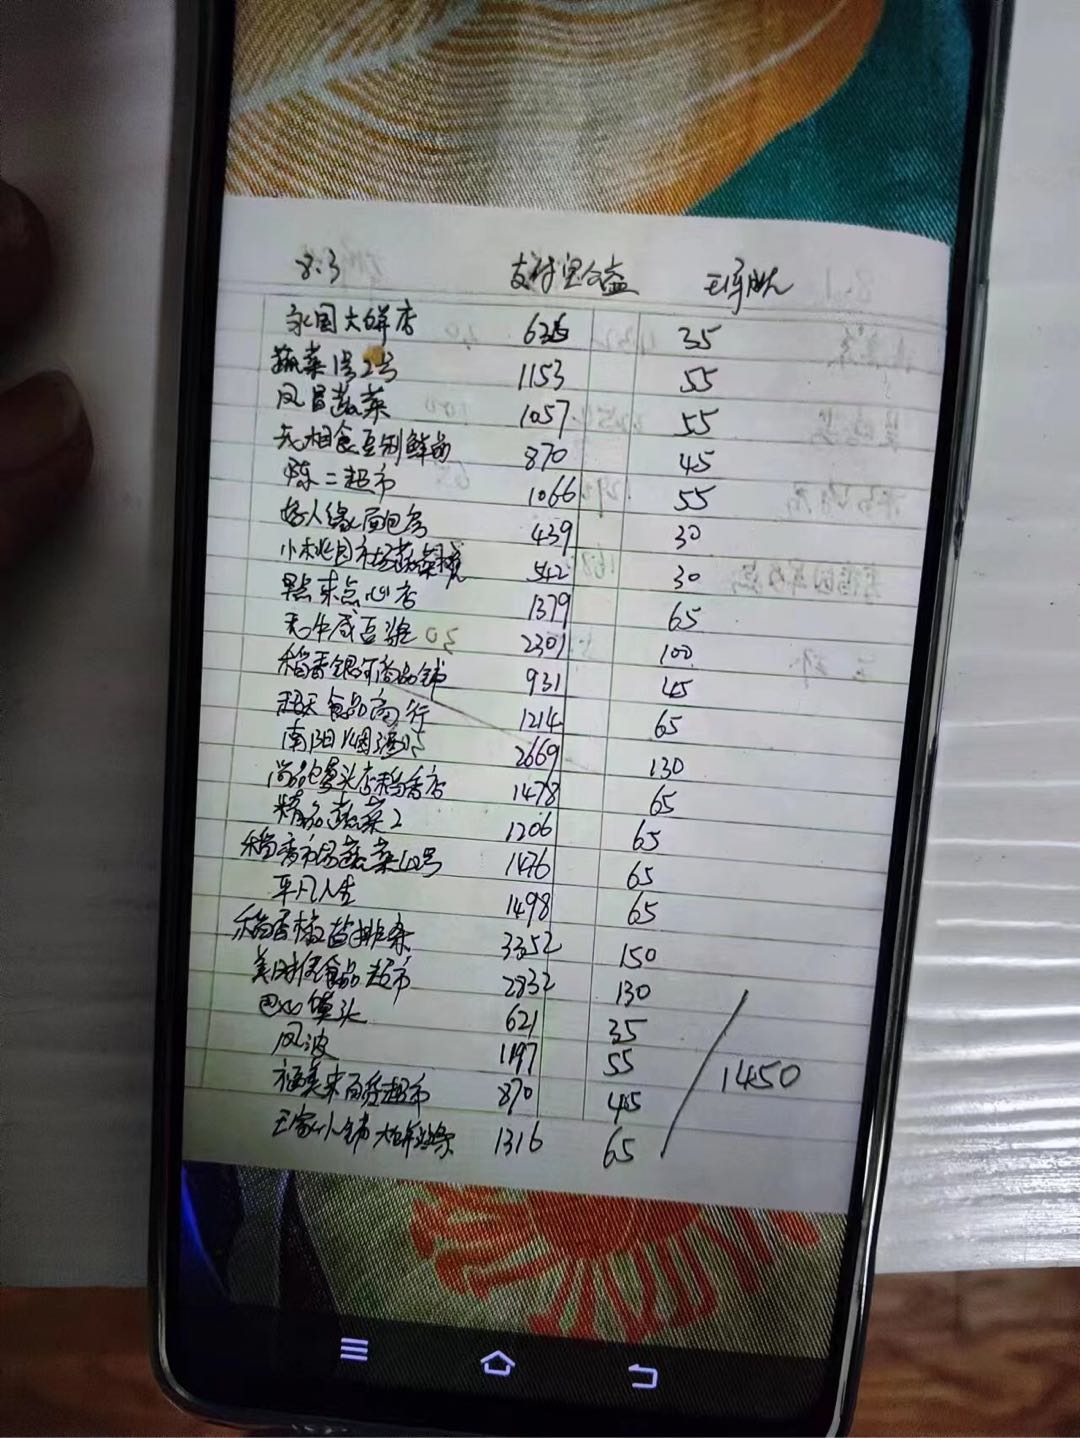 8.3 支付宝公益
永国大饼店 635 35
蔬菜1号2号 1153 55
凤昌蔬菜 1057 55
豆制 870 45
陈二超市 1066 55
好人缘面包房 439 30
小桃园市场蔬菜 542 30
点来点心店 1379 65
无牛咸豆浆 2301 100
稻香银河商品铺 931 45
天食品商行 1214 65
南阳烟酒 2669 130
尚品馒头店稻香店 1478 65
精品蔬菜2 1206 65
稻香市场蔬菜 号 1476 65
平凡人生 1498 65
稻香椒盐排条 3352 150
美时食品超市 2832 130
巴比馒头 621 35
凤波 1197 55
福美来百货超市 870 45
王家小铺大饼油条 1316 65
1450